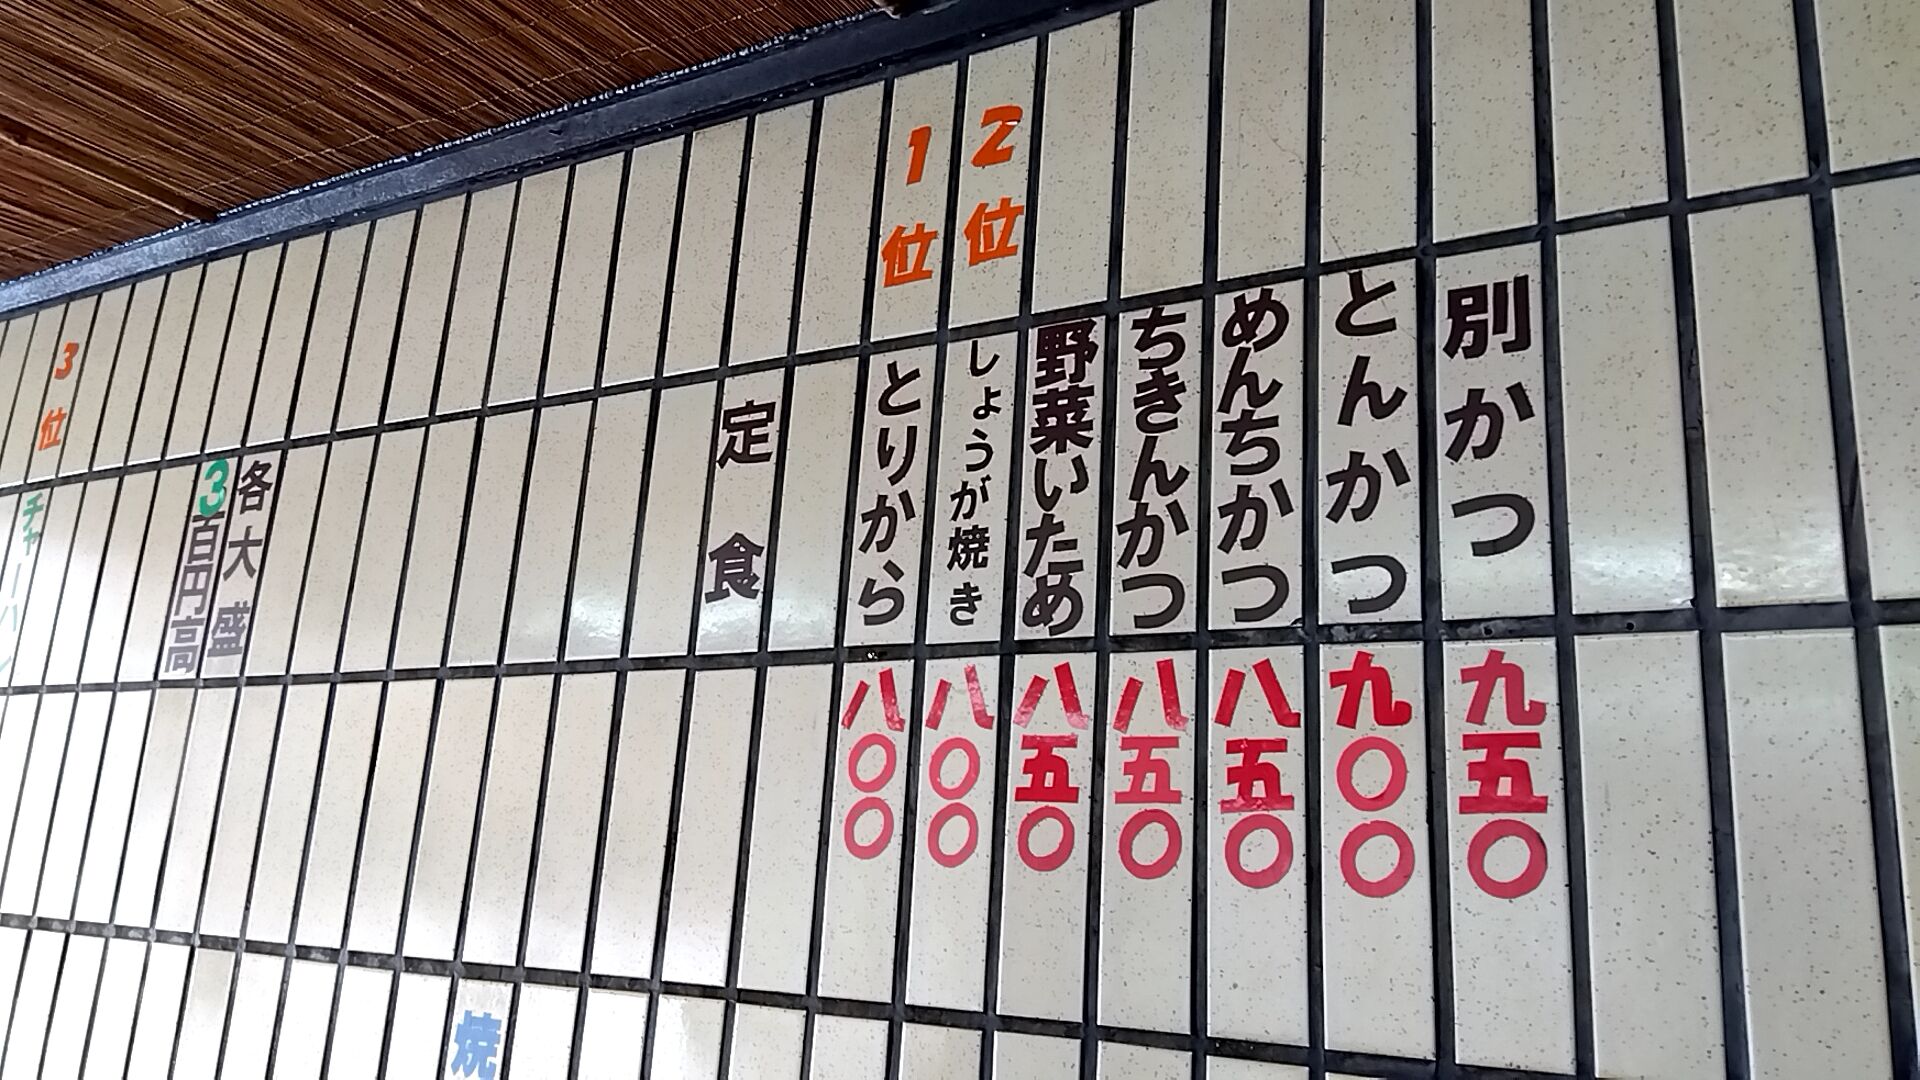 別かつ 九五〇
とんかつ 九〇〇
めんちかつ 八五〇
ちきんかつ 八五〇
野菜いため 八五〇
2位 しょうが焼き 八〇〇
1位 とりから 八〇〇
定食
各大盛
3百円高
3位
チャーハン
焼